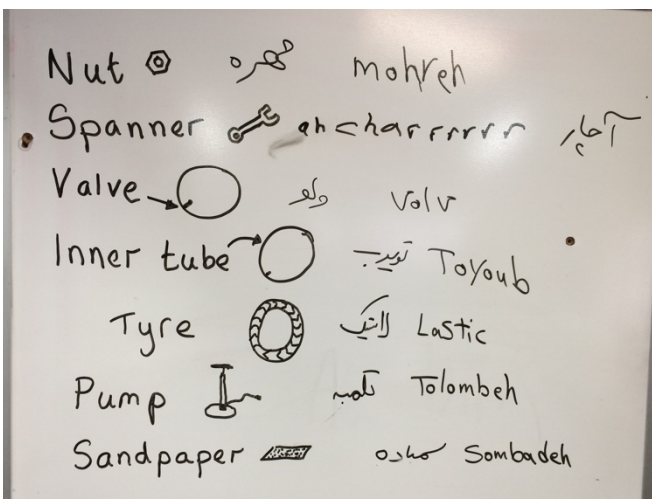 Nut مهره mohreh
Spanner ahcharrrrrr آچار
Valve ولو Volv
Inner tube تیوب Toyoub
Tyre لاستیک Lastic
Pump تلمبه Tolombeh
Sandpaper سمباده Sombadeh